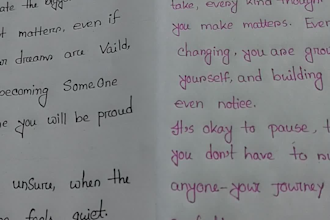 ate the
t matters, even if
dreams are Vaild,
becoming Some One
e you will be proud
unsure, when the
feels quiet.
take, every kind thought
you make matters. Ever
changing, you are grou
yourself, and building
even notice.
It's okay to pause, t
you don't have to
anyone-your Journey